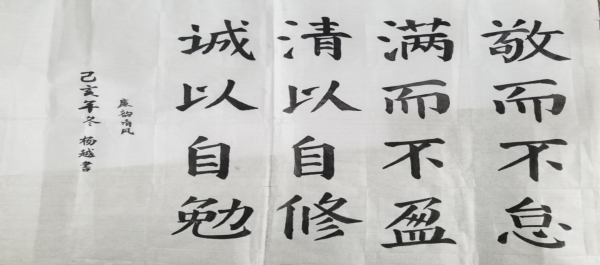 敬而不怠
满而不盈
清以自修
诚以自勉
廉韵清风
己亥年冬杨越书